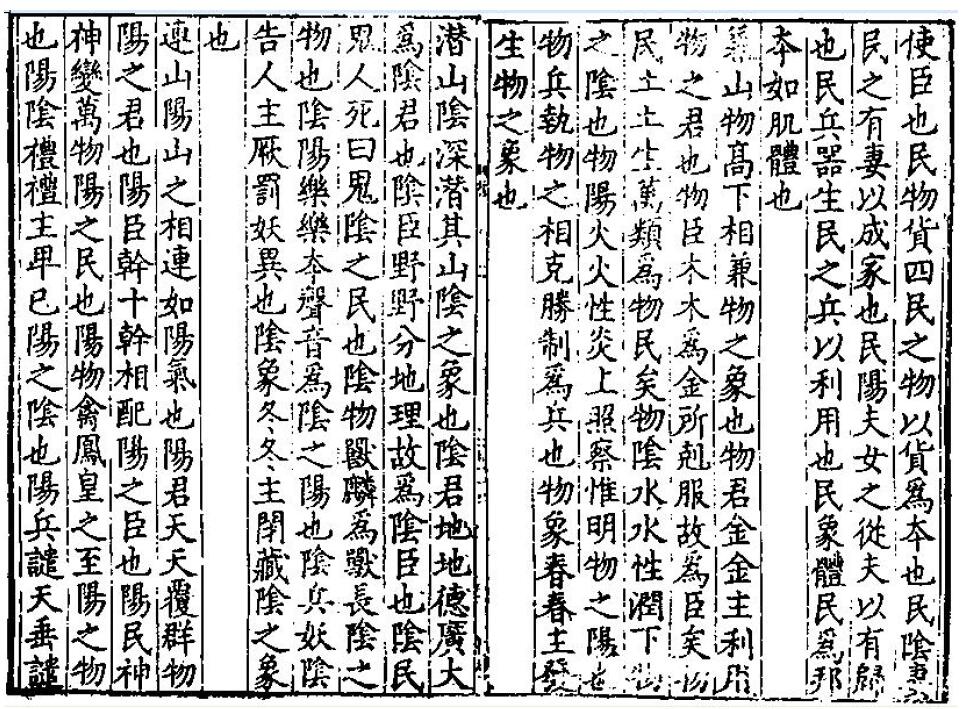 使臣也民物貨四民之物以貨爲夲也民陰
民之有妻以成家也民陽夫女之從夫以有歸
也民兵器生民之兵以利用也民象體民爲邦
夲如肌體也
兼山物高下相兼物之象也物君金金主利用
物之君也物臣木木爲金所剋服故爲臣矣物
民土土生萬類爲物民矣物陰水水性潤下物
之陰也物陽火火性炎上照察惟明物之陽也
物兵執物之相克勝制爲兵也物象春春主發
生物之象也
潜山陰深潜其山陰之象也陰君地地德廣大
爲陰君也陰臣野野分地理故爲陰臣也陰民
鬼人死曰鬼陰之民也陰物獸麟爲獸長陰之
物也陰陽樂樂夲聲音爲陰之陽也陰兵妖陰
告人主厥罰妖異也陰象冬冬主閉藏陰之象
也
連山陽山之相連如陽氣也陽君天天覆群物
陽之君也陽臣幹十幹相配陽之臣也陽民神
神變萬物陽之民也陽物禽鳳皇之至陽之物
也陽陰禮禮主卑已陽之陰也陽兵譴天垂譴